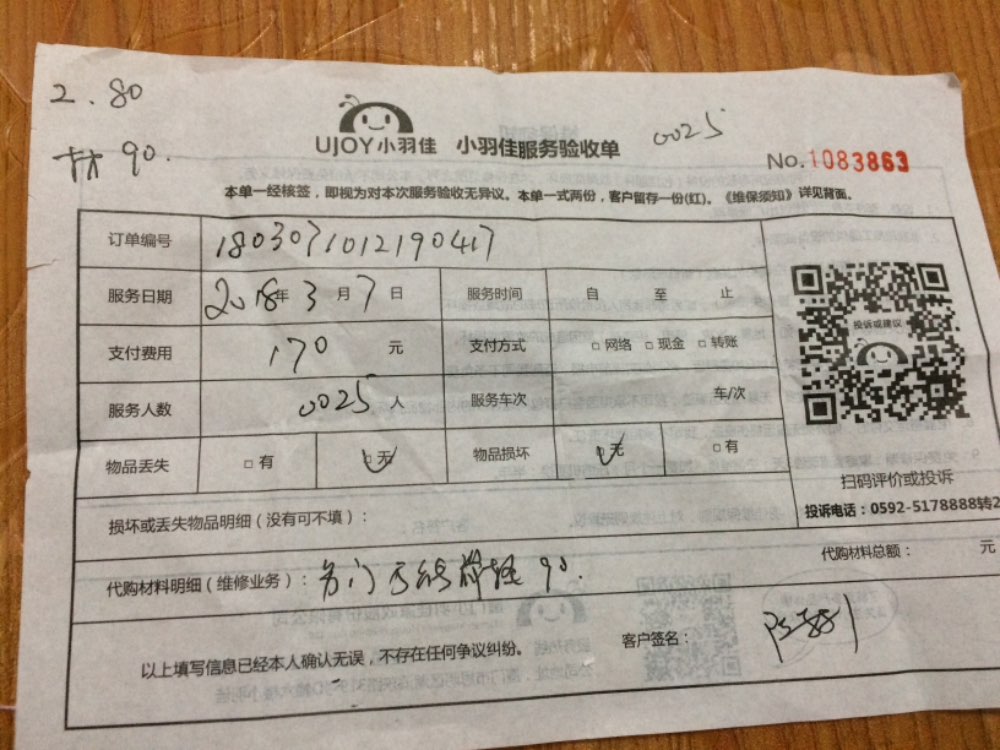 2.80
90.
0025
UJOY小羽佳 小羽佳服务验收单
No.1083863
本单一经核签，即视为对本次服务验收无异议。本单一式两份，客户留存一份(红)。《维保须知》详见背面。
订单编号 180307101219 0417
服务日期 2018年 3 月 7 日 服务时间 自 至 止
支付费用 170 元 支付方式 □网络 □现金 □转账
服务人数 0025 人 服务车次 车/次
物品丢失 □有 □无 物品损坏 □无 □有
投诉或建议
扫码评价或投诉
投诉电话：0592-5178888转2
损坏或丢失物品明细（没有可不填）：
代购材料总额： 元
代购材料明细（维修业务）： 90.
以上填写信息已经本人确认无误，不存在任何争议纠纷。 客户签名：